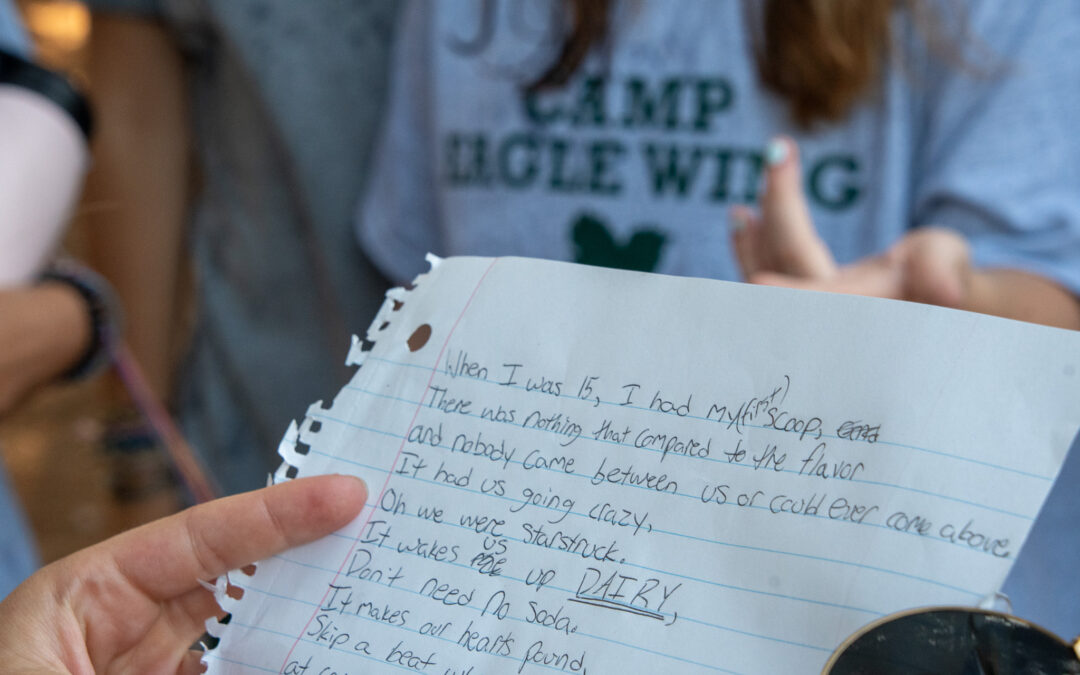 CAMP
EAGLE WING
When I was 15, I had my (first) scoop,
There was nothing that compared to the flavor
and nobody came between us or could ever come above.
It had us going crazy,
Oh we were starstruck.
It wakes us up DAIRY,
Don't need no soda.
It makes our hearts pound,
Skip a beat
at